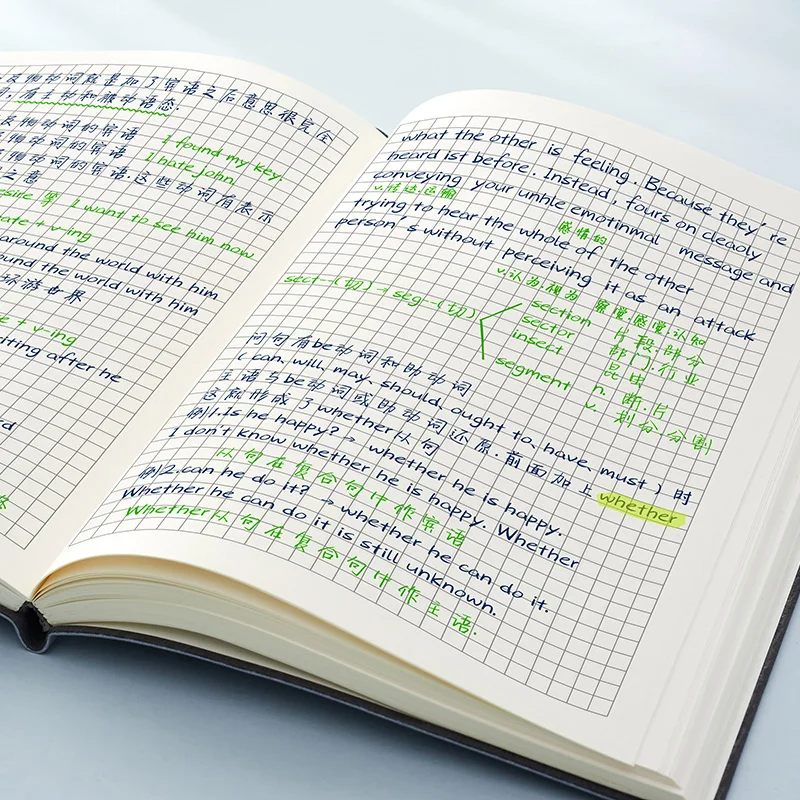 及物动词就是加了宾语之后意思很完全
有主动和被动语态.
及物动词的宾语
I found my key.
及物动词的宾语
I hate John.
物动词的宾语.这些动词有表示
之意
I want to see him now
+ v-ing
around the world with him
ound the world with him
环游世界
e + v-ing
iting after he
what the other is feeling. Because they're
heard ist before. Instead, fours on cleaoly
conveying your unhle emotinmal message and
v.传达.运输
感情的
trying to hear the whole of the other
person's without perceiving it as an attack
v.认为.视为 察觉.感觉.认知
sect-(切) → seg-(切)
section 片段.部分
sector 部门.行业
insect 昆虫
segment n. 断.片
v. 划分.分割
问句有be动词和助动词
( can, will, may, should, ought to, have, must ) 时
主语与be动词或助动词还原.前面加上 whether
这就形成了whether从句
例1.Is he happy? → whether he is happy.
I don't know whether he is happy. Whether
从句在复合句中作宾语
例2.can he do it? → whether he can do it.
Whether he can do it is still unknown.
Whether从句在复合句中作主语.